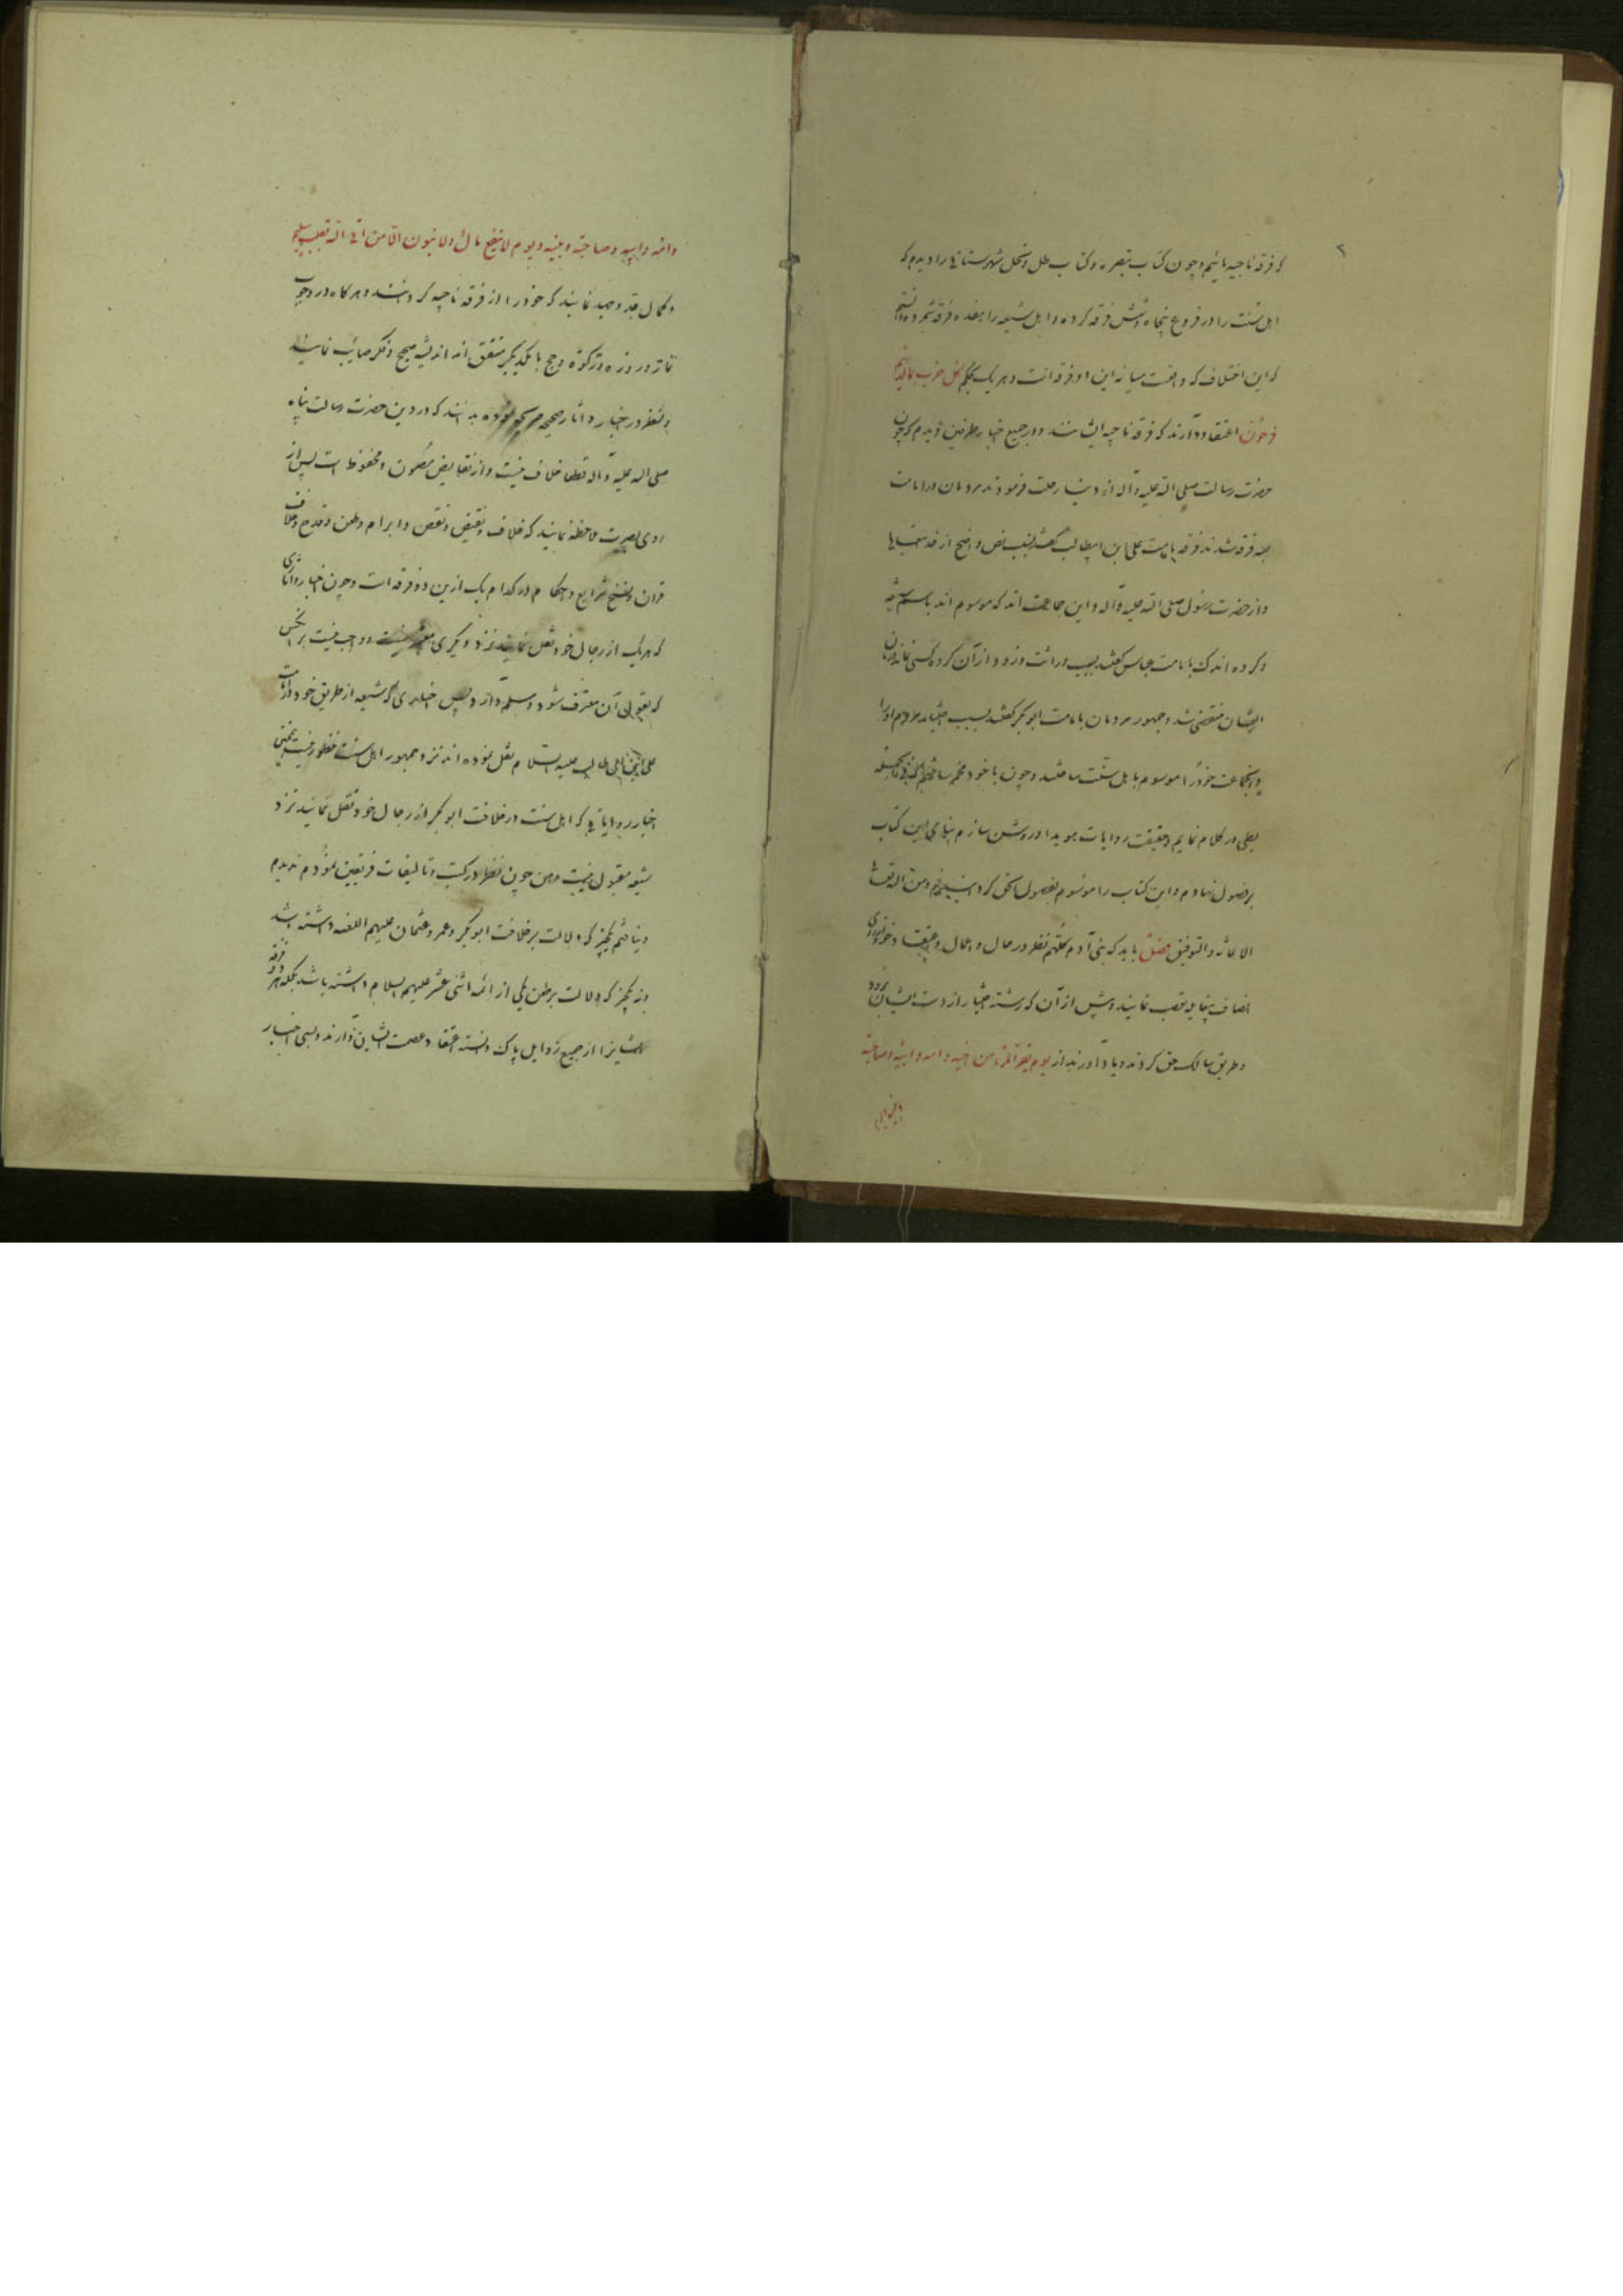 ۲
که فرقه ناجیه مائیم و چون کتاب تبصره و کتاب ملل و نحل شهرستانی را دیدم که
اهل سنت را در فروع پنجاه و شش فرقه کرده و اهل شیعه را هفده فرقه شمرده دانستم
که این اختلاف که واقعست میانه این دو فرقه است و هر یک بحکم کل حزب بما لدیهم
فرحون اعتقاد دارند که فرقه ناجیه ایشانند و در جمیع اخبار طرفین دیدم که چون
حضرت رسالت صلی الله علیه و آله از دنیا رحلت فرمودند مردمان در امامت
سه فرقه شدند فرقه بامامت علی ابن ابیطالب گفتند بسبب نص واضح از خدایتعالی
و از حضرت رسول صلی الله علیه و آله و این جماعت اند که موسوم اند باسم شیعه
و گروه اندک بامامت عباس گفتند بسبب وراثت و زود از آن گروه کسی نماند
ایشان منقضی شد و جمهور مردمان بامامت ابوبکر گفتند بسبب اختیار مردم او را
و اینجماعت خود را موسوم باهل سنت ساختند و چون با خود
در کلام نمایم و حقیقت روایات هویدا و روشن سازم بنای این کتاب
بر فصول نهادم و این کتاب را موسوم بفصول الحق گردانیدم و من الله
الاعانه و التوفیق فصل باید که بنی آدم کلهم نظر در حال و اعمال و اعتقاد خود
انصاف بیغایله تعصب نمایند و پیش از آن که رشته اختیار از دست ایشان برود
و طریق سالک حق گردند و یاد آورند از یوم یفر المرء من اخیه و امه و ابیه و صاحبته
و امه و ابیه و صاحبته و بنیه و یوم لا ینفع مال و لا بنون الا من اتی الله بقلب سلیم
و کمال جد و جهد نمایند که خود را از فرقه ناجیه گردانند و هرگاه در وجوب
نماز و روزه و زکوة و حج با یکدیگر متفق اند اندیشه صحیح و فکر صائب نمایند
و نظر در اخبار و آثار صحیحه نموده بدانند که در دین حضرت رسالت پناه
صلی الله علیه و آله قطعا خلاف نیست و از نقایض مصون و محفوظ است پس از
روی بصیرت ملاحظه نمایند که خلاف و نقیض و نقص و ابرام و طعن و قدح و خلاف
قران و نسخ شرایع و احکام در کدام یک ازین دو فرقه است و چون اخبار و آثاری
که هر یک از رجال خود نقل نمایند نزد دیگری معتبر نیست و واجب نیست بر آنکس
که بقول آن معترف شود و مسلم دارد پس اخباری که شیعه از طریق خود در امامت
علی ابن ابی طالب علیه السلام نقل نموده اند نزد جمهور اهل سنت منظور نیست همچنین
اخبار و روایاتی که اهل سنت در خلافت ابوبکر از رجال خود نقل نمایند نزد
شیعه مقبول نیست و من چون نظر در کتب و تالیفات فریقین نمودم ندیدم
و نیافتم چیزی که دلالت بر خلافت ابوبکر و عمر و عثمان علیهم اللعنه داشته باشد
و نه چیزی که دلالت بر طعن یکی از ائمه اثنی عشر علیهم السلام داشته باشد بلکه هر دو فرقه
ایشانرا از جمیع رذایل پاک دانسته اعتقاد عصمت ایشان دارند و بسی اخبار